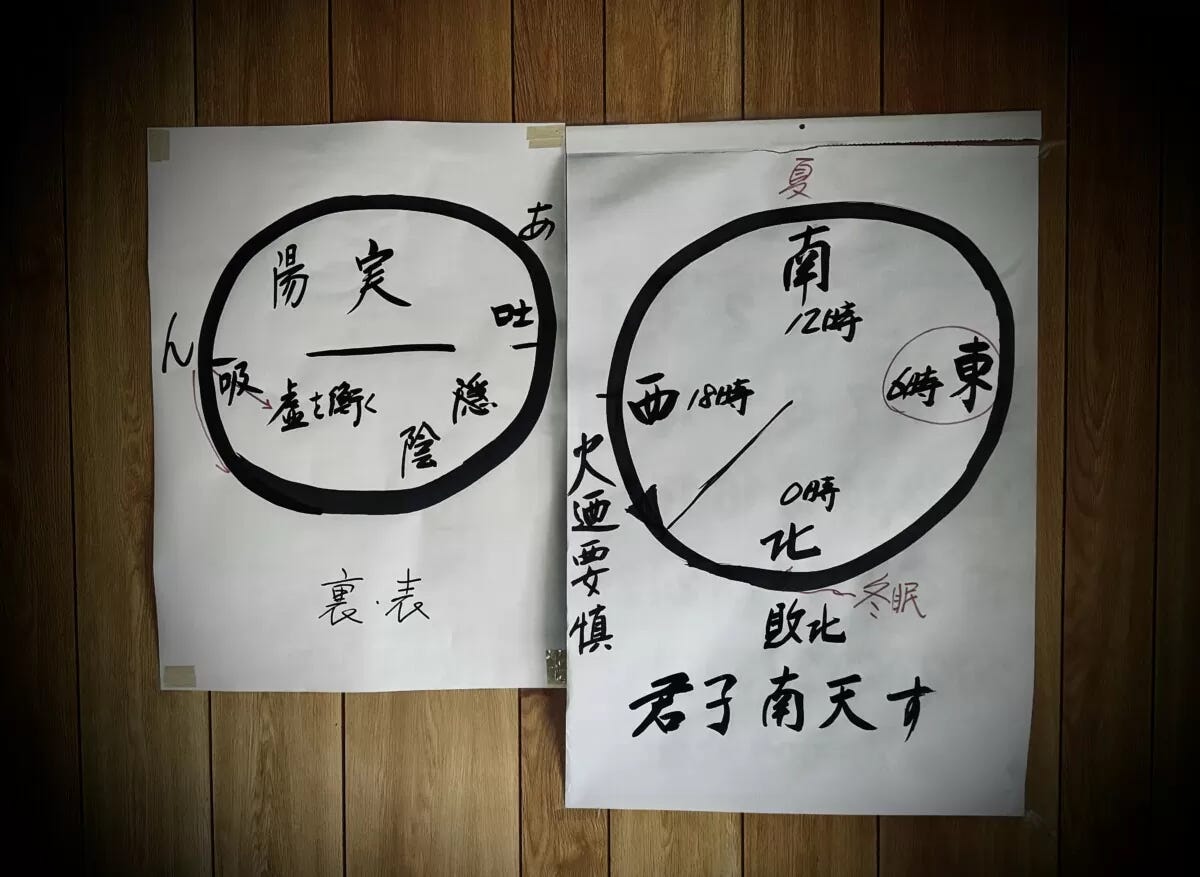 あ
陽 実
吐
ん
吸
虚を衝く
隠
陰
裏・表
夏
南
12時
東
6時
西 18時
0時
北
冬眠
敗北
火廼要慎
君子南天す